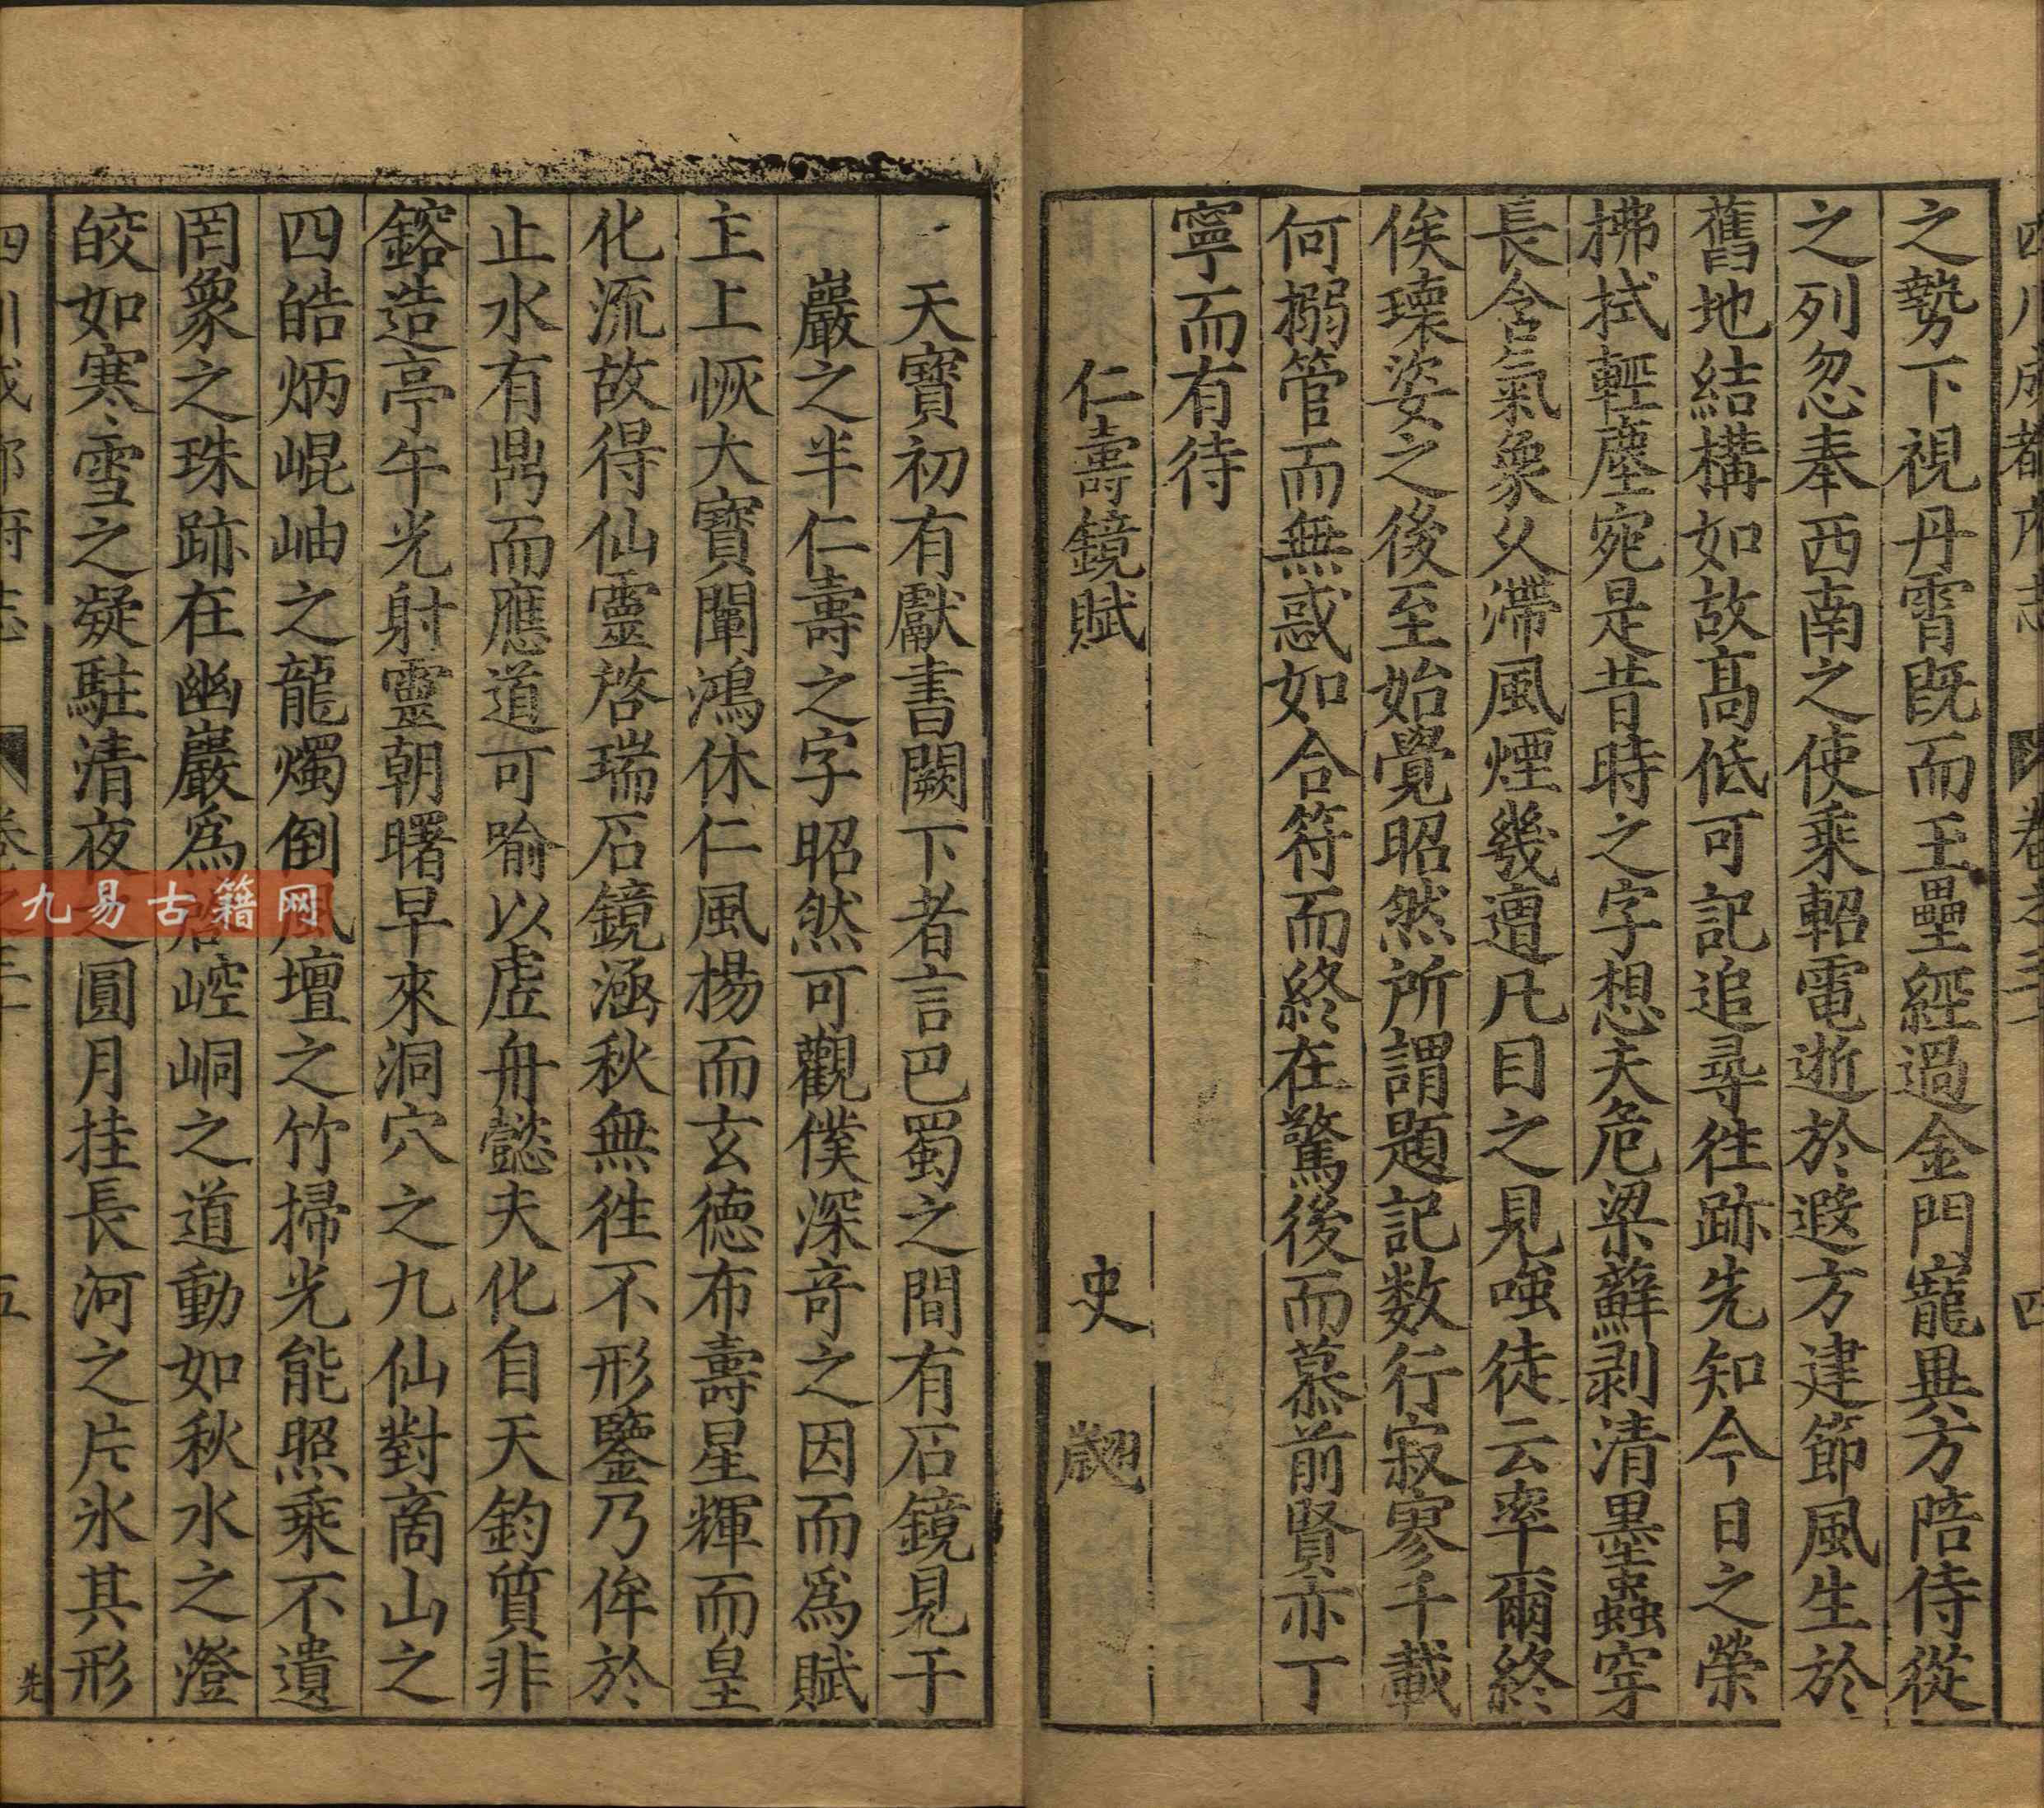 之勢下視丹霄既而王壘經過金門寵異方陪侍從
之列忽奉西南之使乘軺電逝於遐方建節風生於
舊地結構如故高低可記追尋徃跡先知今日之榮
拂拭輕塵宛是昔時之字想夫危梁蘚剥清墨蟲穿
長含氣象乆滯風煙幾遭凡目之見嗤徒云率爾終
俟瓌姿之後至始覺昭然所謂題記数行寂寥千載
何搦管而無惑如合符而終在驚後而慕前賢亦丁
寧而有待
仁壽鏡賦 史 翽
天寶初有獻書闕下者言巴蜀之間有石鏡見于
巖之半仁壽之字昭然可觀僕深竒之因而為賦
主上恢大寶闡鴻休仁風楊而玄德布壽星輝而皇
化流故得仙靈啓瑞石鏡涵秋無徃不形鑒乃侔於
止水有鼎而應道可喻以虛舟懿夫化自天鈞質非
鎔造亭午光射靈朝曙早來洞穴之九仙對商山之
四皓炳崐岫之龍燭倒風壇之竹掃光能照乘不遺
罔象之珠跡在幽巖為啓崆峒之道動如秋水之澄
皎如寒雪之凝駐清夜之圓月挂長河之片氷其形
四川成都府志 卷之三十 四
四川成都府志 卷之三十 五
先
九易古籍网